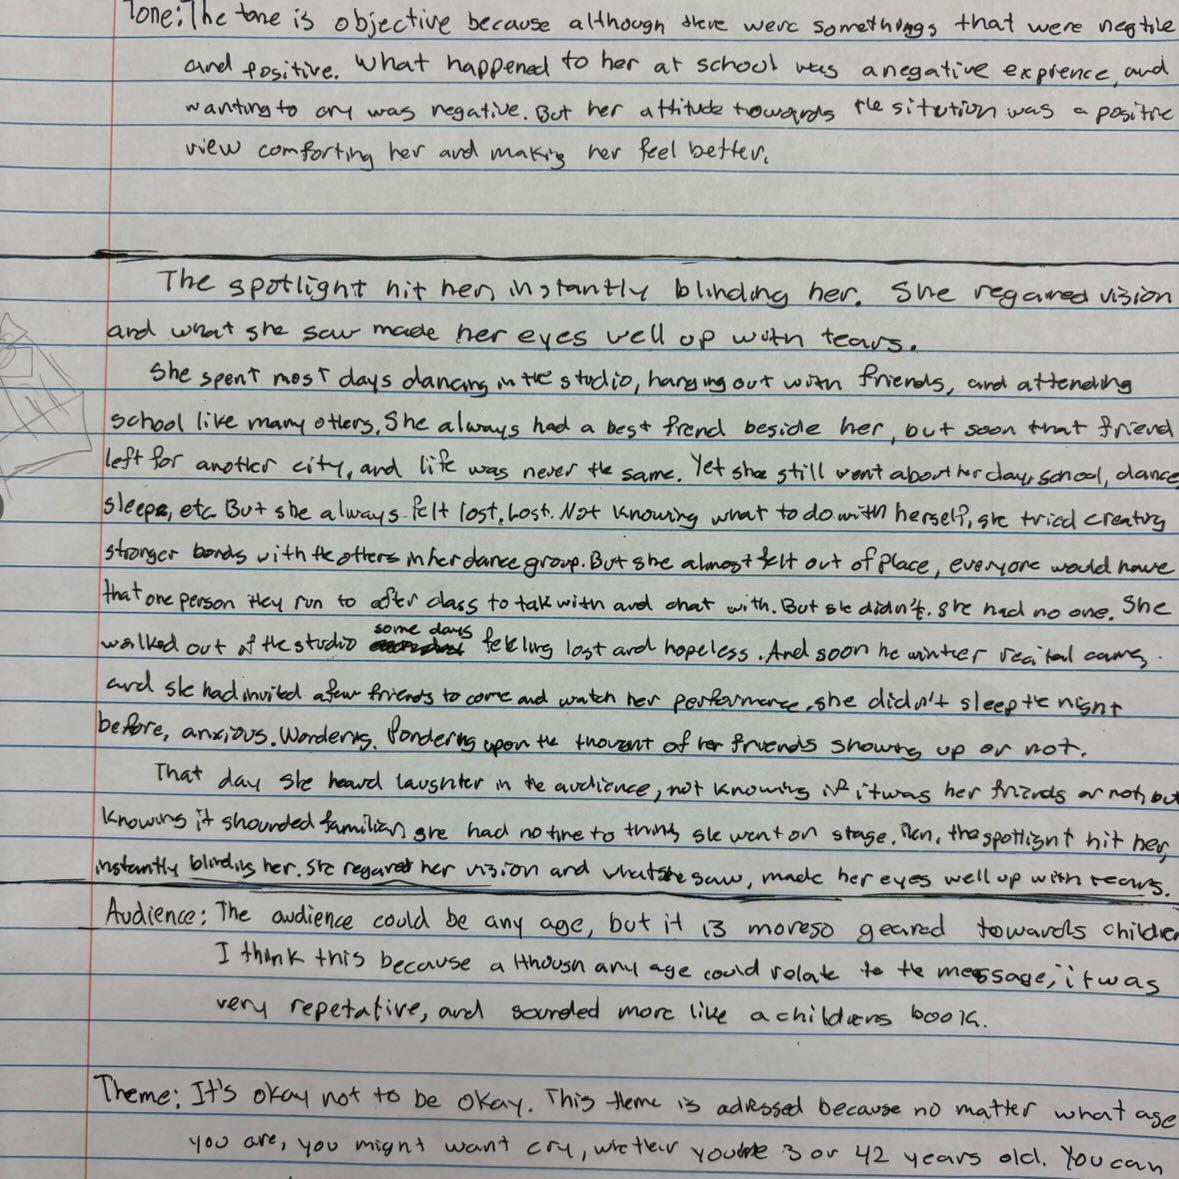 Tone: The tone is objective because although there were somethings that were negtile
and positive. What happened to her at school was a negative exprence, and
wanting to cry was negative. But her attitude towards the sitution was a positive
view comforting her and making her feel better.
The spotlight hit her, instantly blinding her. She regained vision
and what she saw made her eyes well up with tears.
She spent most days dancing in the studio, hanging out with friends, and attending
school like many others. She always had a best frend beside her, but soon that friend
left for another city, and life was never the same. Yet she still went about her day, school, dance
sleeps, etc. But she always felt lost. Lost. Not knowing what to do with herself, she tried creating
stronger bonds with the others in her dance group. But she almost felt out of place, everyone would have
that one person they run to after class to talk with and chat with. But she didn't. She had no one. She
walked out of the studio some days feeling lost and hopeless. And soon he winter recital came,
and she had invited a few friends to come and watch her performance, she didn't sleep the night
before, anxious. Wondering. Pondering upon the thought of her friends showing up or not.
That day she heard laughter in the audience, not knowing if it was her friends or not, but
knowing it sounded familiar, she had no time to think she went on stage. Then, the spotlight hit her,
instantly blinding her. She regained her vision and what she saw, made her eyes well up with tears.
Audience: The audience could be any age, but it is moreso geared towards childre
I think this because although any age could relate to the message, it was
very repetative, and sounded more like a childrens book.
Theme: It's okay not to be okay. This theme is adressed because no matter what age
you are, you might want cry, whether you're 3 or 42 years old. You can